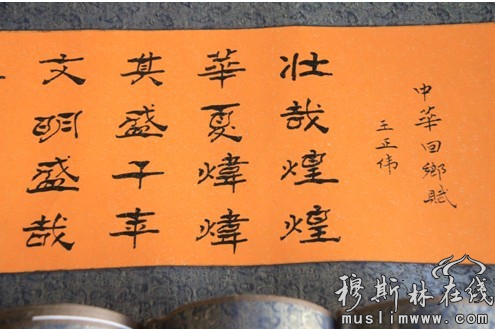 中華回鄉賦
王正伟
壯哉煌煌
華夏煒煒
其盛千年
文明盛哉
穆斯林在线
muslimwww.com